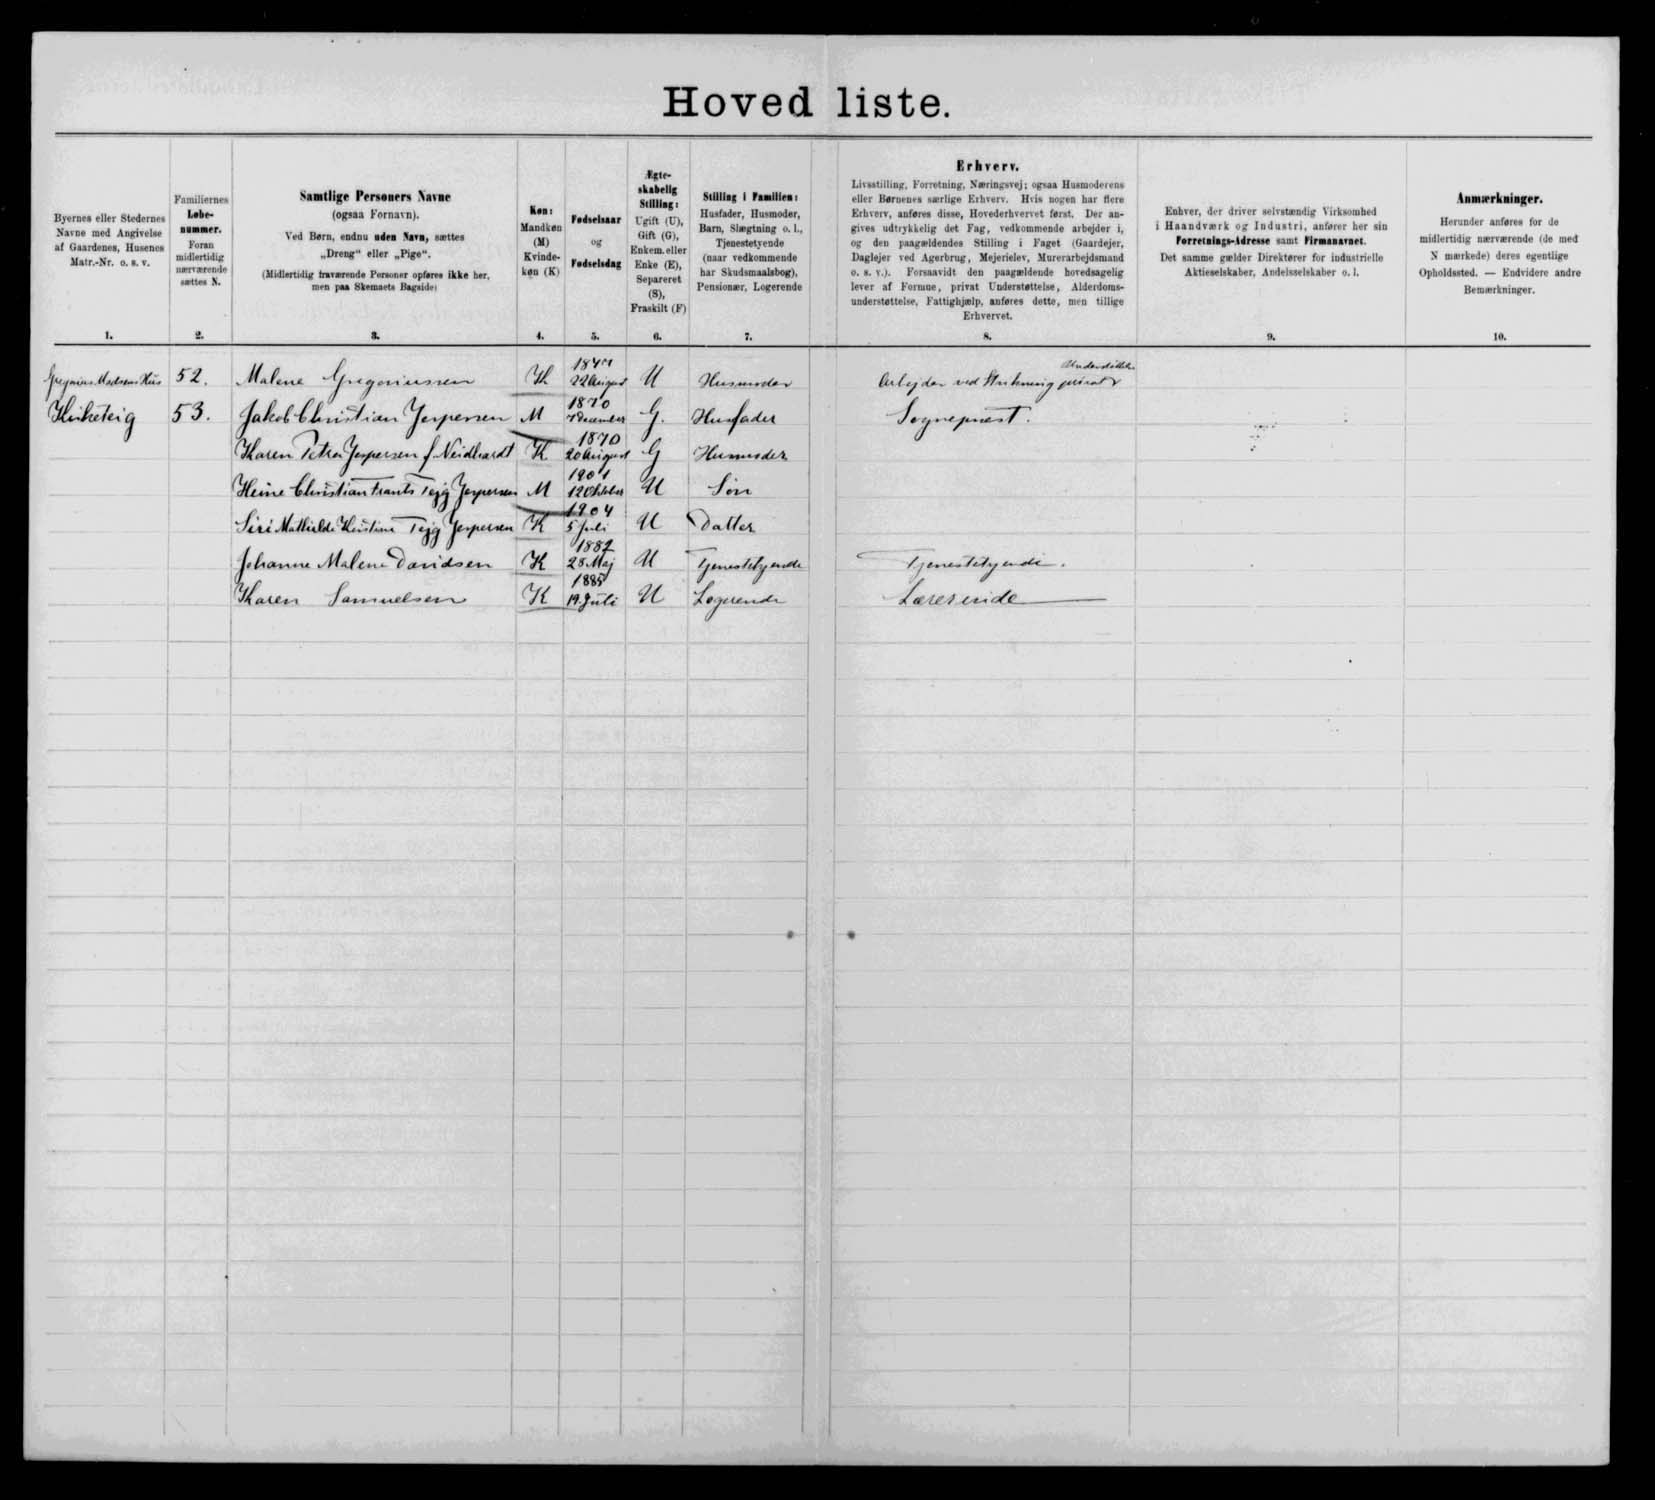 Hoved liste.
Byernes eller Stedernes
Navne med Angivelse
af Gaardenes, Husenes
Matr.-Nr. o. s. v.
1.
Familiernes
Løbe-
nummer.
Foran
midlertidig
nærværende
sættes N.
2.
Samtlige Personers Navne
(ogsaa Fornavn).
Ved Børn, endnu uden Navn, sættes
„Dreng“ eller „Pige“.
(Midlertidig fraværende Personer opføres ikke her,
men paa Skemaets Bagside)
3.
Køn:
Mandkøn
(M)
Kvinde-
køn (K)
4.
Fødselsaar
og
Fødselsdag
5.
Ægte-
skabelig
Stilling:
Ugift (U),
Gift (G),
Enkem. eller
Enke (E),
Separeret
(S),
Fraskilt (F)
6.
Stilling i Familien:
Husfader, Husmoder,
Barn, Slægtning o. l.,
Tjenestetyende
(naar vedkommende
har Skudsmaalsbog),
Pensionær, Logerende
7.
Erhverv.
Livsstilling, Forretning, Næringsvej; ogsaa Husmoderens
eller Børnenes særlige Erhverv. Hvis nogen har flere
Erhverv, anføres disse, Hovederhvervet først. Der an-
gives udtrykkelig det Fag, vedkommende arbejder i,
og den paagældendes Stilling i Faget (Gaardejer,
Daglejer ved Agerbrug, Mejerielev, Murerarbejdsmand
o. s. v.). Forsaavidt den paagældende hovedsagelig
lever af Formue, privat Understøttelse, Alderdoms-
understøttelse, Fattighjælp, anføres dette, men tillige
Erhvervet.
8.
Enhver, der driver selvstændig Virksomhed
i Haandværk og Industri, anfører her sin
Forretnings-Adresse samt Firmanavnet.
Det samme gælder Direktører for industrielle
Aktieselskaber, Andelsselskaber o. l.
9.
Anmærkninger.
Herunder anføres for de
midlertidig nærværende (de med
N mærkede) deres egentlige
Opholdssted. — Endvidere andre
Bemærkninger.
10.
Madsens Hus 52. Malene Gregoriussen K 22 August U Husmoder Arbejder ved Strikning privat
Kirketeig 53. Jakob Christian Jespersen M 1870 7 December G. Husfader Sognepræst.
Karen Petra Jespersen f. Neidhardt K 1870 20 August G Husmoder
Heine Christian Frants Tejg Jespersen M 1901 12 Oktober U Søn
Siri Mathilde Kristine Tejg Jespersen K 1904 5 Juli U Datter
Johanne Malene Davidsen K 1882 28 Maj U Tjenestetyende Tjenestetyende.
Karen Samuelsen K 1885 19. Juli U Logerende Lærerinde